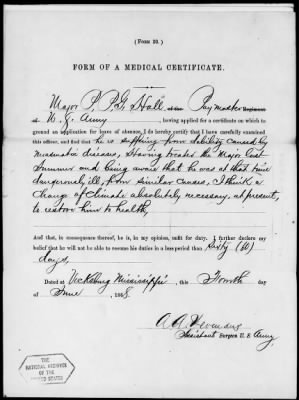 (FORM 20.)
FORM OF A MEDICAL CERTIFICATE.
Major P. P. G. Hall of the Paymaster Regiment
of U. S. Army, having applied for a certificate on which to
ground an application for leave of absence, I do hereby certify that I have carefully examined
this officer, and find that he is suffering from debility caused by
miasmatic disease, Having treated the Major last
Summer and being aware that he was at that time
dangerously ill, from similar causes, I think a
change of climate absolutely necessary, at present,
to restore him to health,
And that, in consequence thereof, he is, in my opinion, unfit for duty. I further declare my
belief that he will not be able to resume his duties in a less period than Sixty (60)
days,
Dated at Vicksburg Mississippi, this Fourth day of
June 1868.
A. A.
Assistant Surgeon U. S. Army.
THE
NATIONAL ARCHIVES
OF THE
UNITED STATES